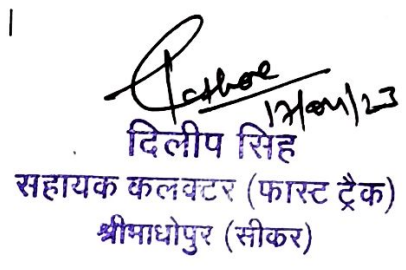 17/04/23
दिलीप सिंह
सहायक कलक्टर (फास्ट ट्रैक)
श्रीमाधोपुर (सीकर)